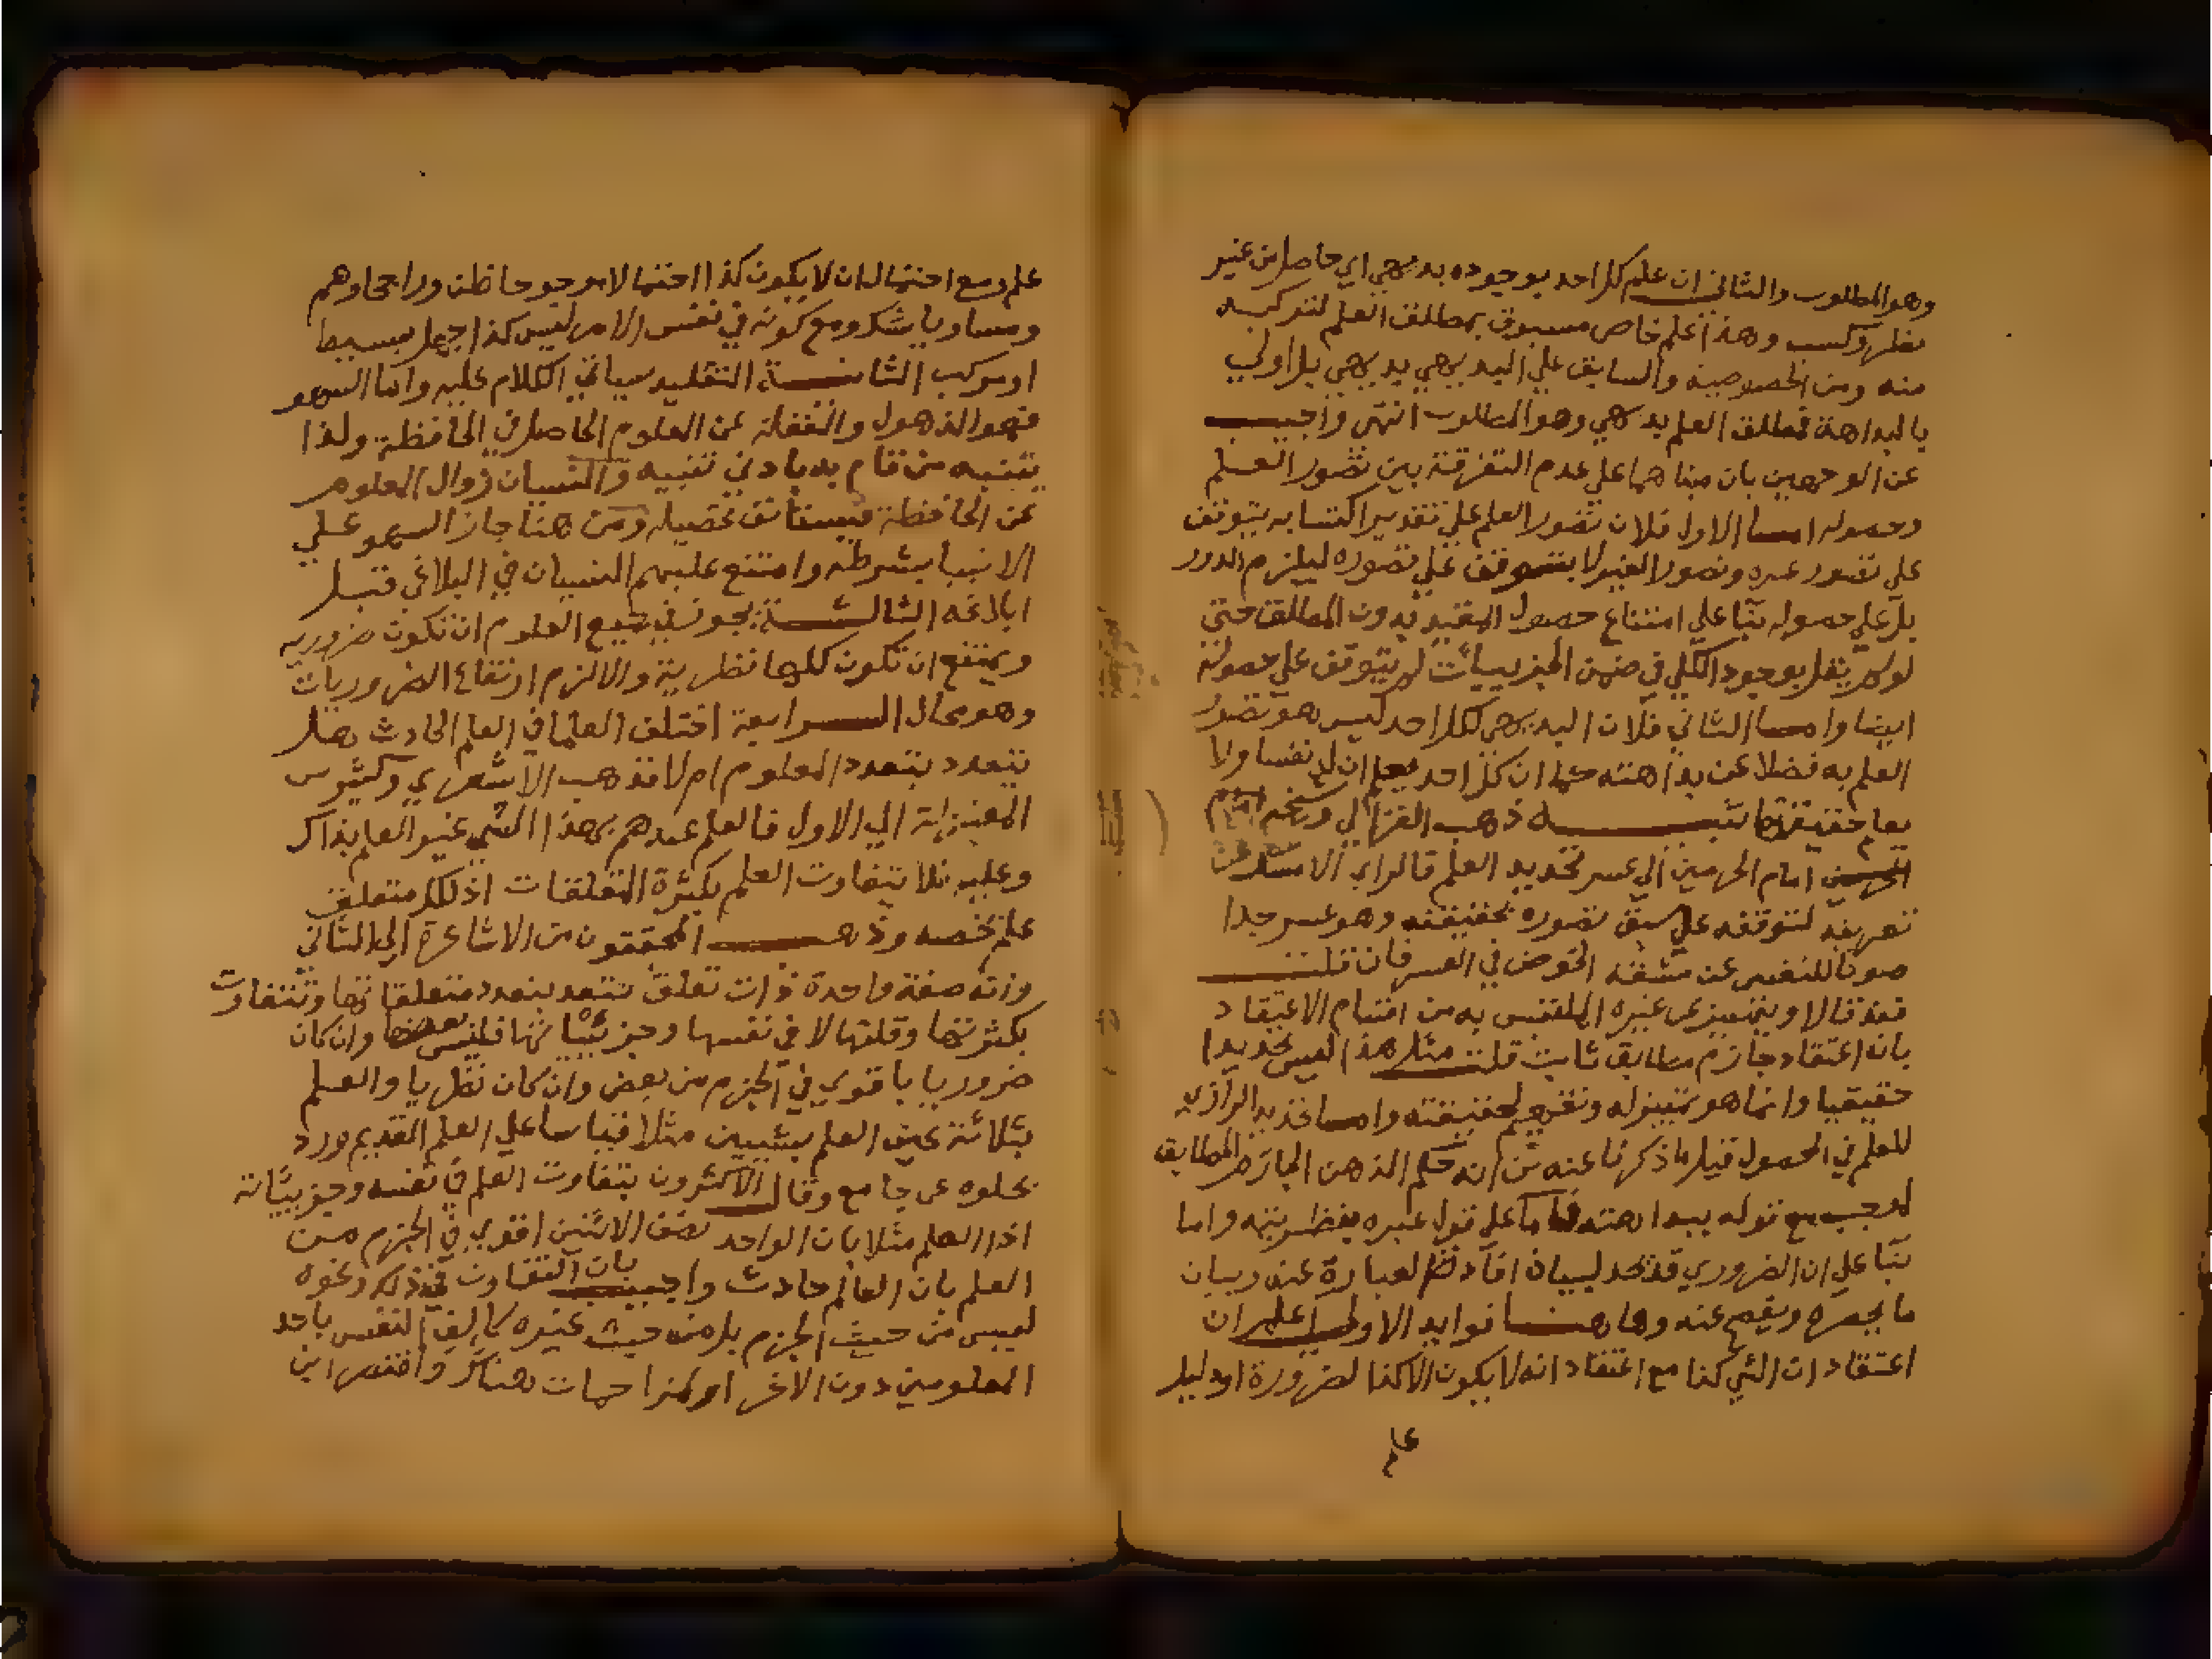 وهو المطلوب والثاني ان علم كل احد بوجوده بديهي اي حاصل من غير
نظر وكسب وهذا علم خاص مسبوق بمطلق العلم لتركبه
منه ومن الخصوصية والسابق علي البديهي بديهي بل اولي
بالبداهة فمطلق العلم بديهي وهو المطلوب انتهي واجيب
عن الوجهين بان مبناهما علي عدم التفرقة بين تصور العلم
وحصوله اما الاول فلان تصور العلم علي تقدير اكتسابه يتوقف
علي تصور غيره وتصور الغير لا يتوقف علي تصوره ليلزم الدور
بل علي حصوله بنا علي امتناع حصول المقيد بدون المطلق حتي
لو لم يقل بوجود الكلي في ضمن الجزييات لم يتوقف علي حصوله
ايضا واما الثاني فلان البديهي لكل احد ليس هو تصور
العلم به فضلا عن بداهته كما ان كل احد يعلم ان له نفسا ولا
يعلم حقيقتها تنبيه ذهب الغزالي وشيخه امام
الحرمين امام الحرمين الي عسر تحديد العلم قال اي الامساك عن
تعريفه لتوقفه علي سبق تصوره بحقيقته وهو عسر جدا
صونا للنفس عن مشقة الخوض في العسر فان قلت
فقد قالا ويتميز عن غيره الملتبس به من اقسام الاعتقاد
بانه اعتقاد جازم مطابق ثابت قلت مثل هذا ليس تحديدا
حقيقيا وانما هو تمييز له وتقريب لحقيقته واما تحديد الرازي
للعلم في المحصول قيل ما ذكرنا عنه من انه حكم الذهن الجازم المطابق
لموجب مع قوله ببداهته فاما علي قول غيره بنظريته واما
بنا علي ان الضروري قد يحد لبيان افادة العبارة عنه وبيان
ما يجمعه ويفصح عنه وهاهنا فوايد الاولي اعلم ان
اعتقاد ان الشي كذا مع اعتقاد انه لا يكون الا كذا لضرورة او دليل
علم
علم ومع احتمال ان لا يكون كذا احتمالا مرجوحا ظن وراجحا وهم
ومساويا شك ومع كونه في نفس الامر ليس كذا جهل بسيط
او مركب الثانية التقليد سياتي الكلام عليه واما السهو
فهو الذهول والغفلة عن العلوم الحاصل في الحافظة ولذا
يتنبه من قام به بادني تنبيه والنسيان زوال المعلوم
عن الحافظة فيستانف تحصيله ومن هنا جاز السهو علي
الانبيا بشرطه وامتنع عليهم النسيان في البلاغي قبل
ابلاغه الثالثة يجوز في جميع العلوم ان تكون ضرورية
ويمتنع ان تكون كلها نظرية والا لزم ارتفاع الضروريات
وهو محال الرابعة اختلف العلما في العلم الحادث هل
يتعدد بتعدد المعلوم ام لا فذهب الاشعري وكثير من
المعتزلة الي الاول فالعلم عندهم بهذا الشي غير العلم بذاك
وعليه فلا يتفاوت العلم بكثرة المتعلقات اذ لكل متعلق
علم يخصه وذهب المحققون من الاشاعرة الي الثاني
وانه صفة واحدة ذات تعلق تتعدد بتعدد متعلقاتها وتتفاوت
بكثرتها وقلتها لا في نفسها وجزئياتها فليس بعضها وان كان
ضروريا باقوي في الجزم من بعض وان كان نظريا والعلم
بثلاثة عين العلم بشيين مثلا قياسا علي العلم القديم ورد
بخلوه عن جامع وقال الاكثرون يتفاوت العلم في نفسه وجزيياته
اذ العلم مثلا بان الواحد نصف الاثنين اقوي في الجزم من
العلم بان العالم حادث واجيب بان التفاوت في ذلك ونحوه
ليس من حيث الجزم بل من حيث غيره كالف النفس باحد
المعلومين دون الاخر او لمزاحمات هناك واقتصر ابن